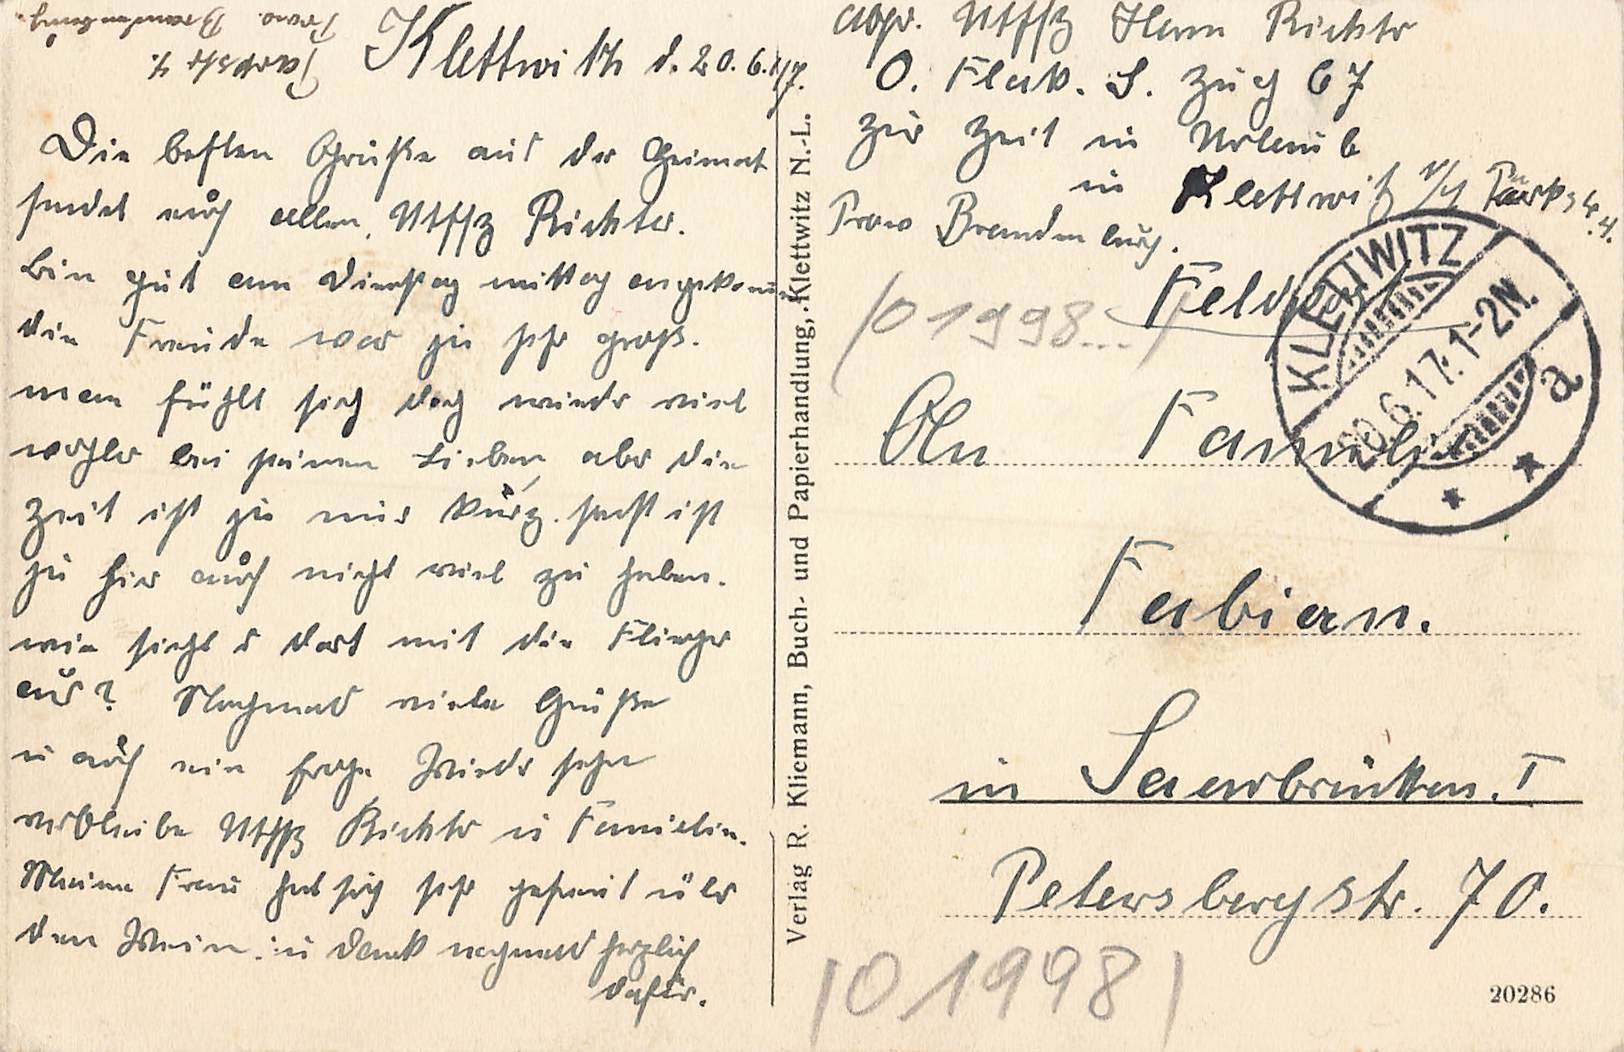 Prov. Brandenburg.
Parkstr 4.
Klettwitz d. 20.6.17.
Die besten Grüße aus der Heimat
sendet euch allen, Utffz Richter.
Bin gut am Dienstag mittag angekomm
die Freude war ja sehr groß.
man fühlt sich doch wieder viel
wohler bei seinen Lieben, aber die
Zeit ist ja nur kurz. sonst ist
ja hier auch nicht viel zu haben.
wie siehts dort mit die Flieger
aus? Nochmals viele Grüße
u auch ein frohe Wieder sehn
verbleibe Utffz Richter u Familie.
Meine Frau hat sich sehr gefreut über
den Wein. u dank nochmals herzlich
dafür.
Verlag R. Kliemann, Buch- und Papierhandlung, Klettwitz N.-L.
Abgs. Utffz Herm Richter
O. Flak. S. Zug 67
zur Zeit in Urlaub
in Klettwitz N/L Parkstr. 4.
Prov Brandenburg.
Feldpost
(01998...)
KLETTWITZ
20.6.17. 1-2N.
a
An Familie
Fabian.
in Saarbrücken. I
Petersbergstr. 70.
(01998)
20286